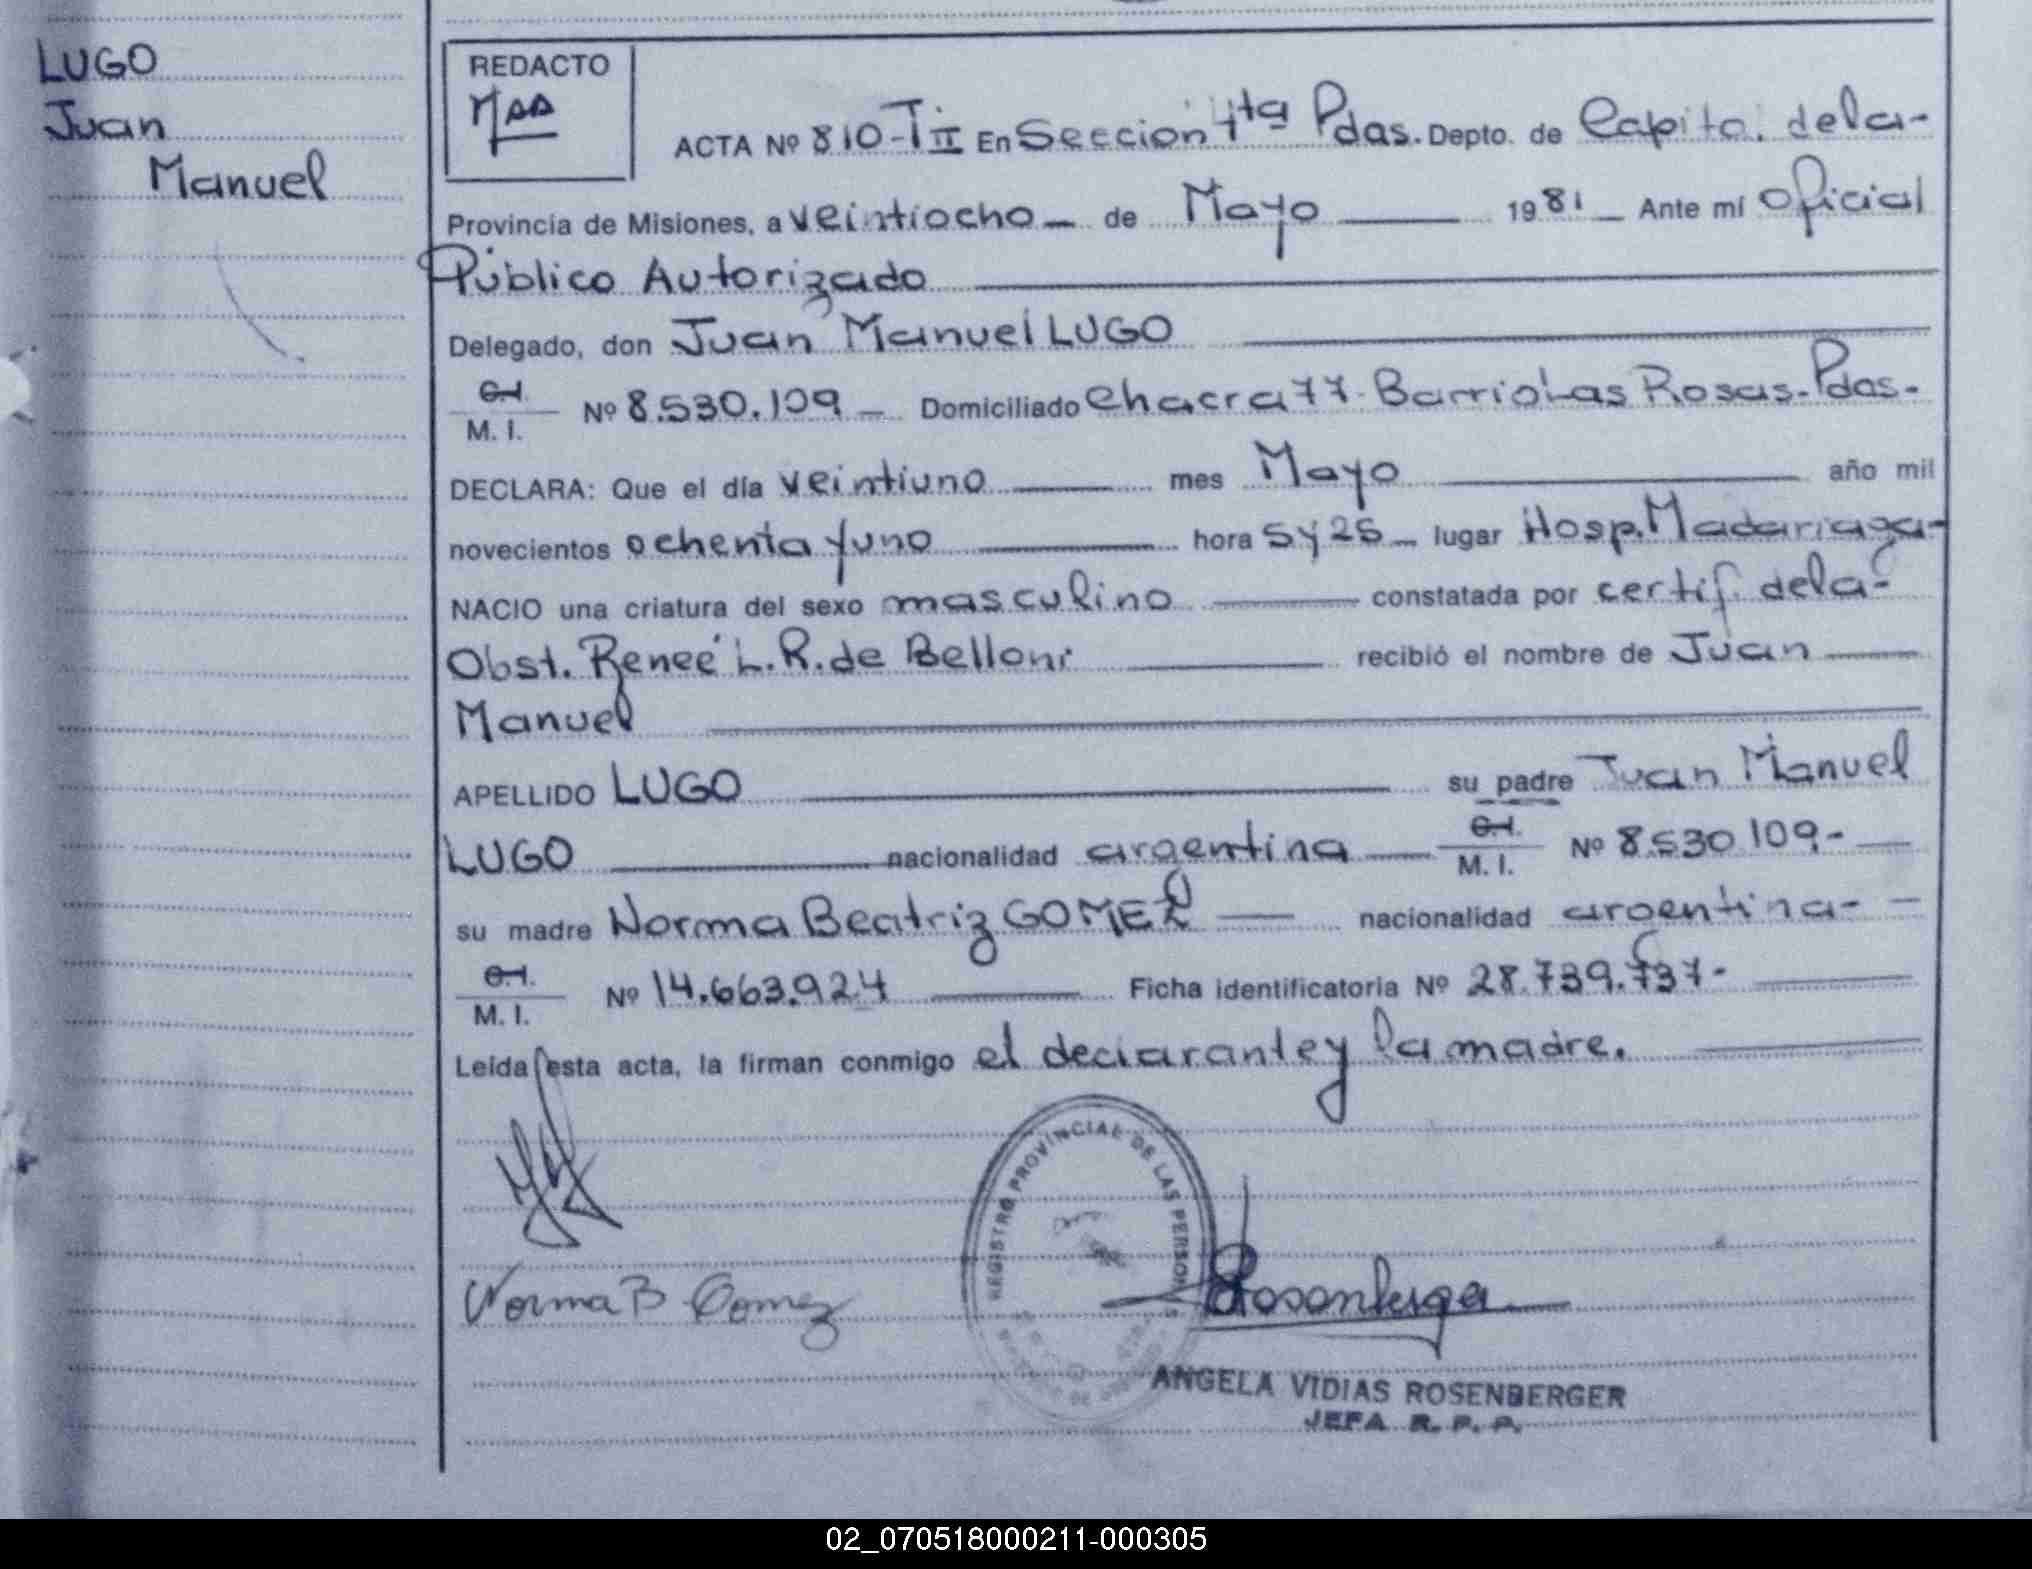 LUGO
Juan
Manuel
REDACTO
ACTA Nº 810-TII En Seccion 4ta Pdas. Depto. de Capital. de la-
Provincia de Misiones, a veintiocho _ de Mayo 1981 _ Ante mí Oficial
Público Autorizado
Delegado, don Juan Manuel LUGO
C.I.
M. I. Nº 8.530.109 _ Domiciliado Chacra 77. Barrio Las Rosas. Pdas.
DECLARA: Que el día veintiuno mes Mayo año mil
novecientos ochenta y uno hora 5 y 25 _ lugar Hosp. Madariaga-
NACIO una criatura del sexo masculino constatada por certif. de la-
Obst. Reneé L. R. de Belloni recibió el nombre de Juan
Manuel
APELLIDO LUGO su padre Juan Manuel
LUGO nacionalidad argentina C.I.
M. I. Nº 8.530.109-
su madre Norma Beatriz GOMEZ nacionalidad argentina-
C.I.
M. I. Nº 14.663.924 Ficha identificatoria Nº 28.739.737-
Leída esta acta, la firman conmigo el declarante y la madre.
REGISTRO PROVINCIAL DE LAS PERSONAS
Norma B Gomez
Rosenberger
ANGELA VIDIAS ROSENBERGER
JEFA R. P. P.
02_070518000211-000305